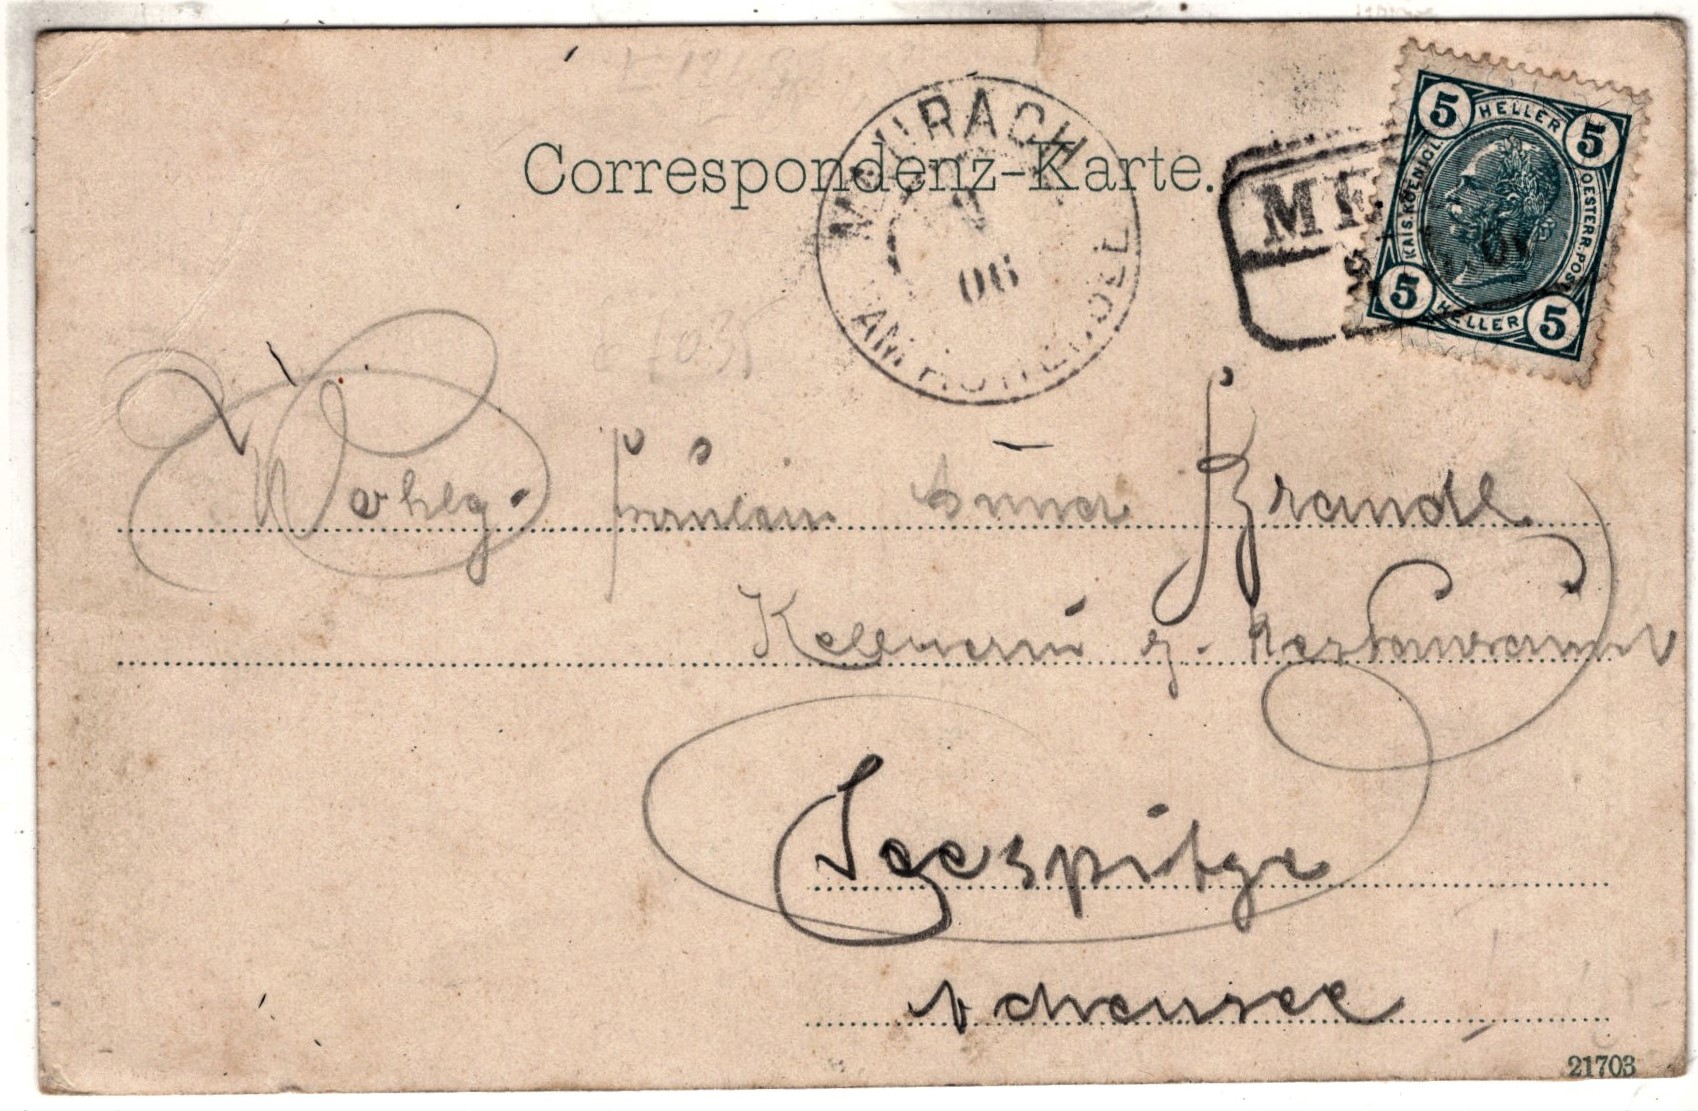 Correspondenz-Karte.
MAURACH
V
06
AM ACHENSEE
ME
5 HELLER 5
KAIS. KOENIGL. OESTERR. POST
5 HELLER 5
Wohlg. Fräulein Anna Brandl
Kellnerin z. Restaurant
Seespitze
Achensee
21703